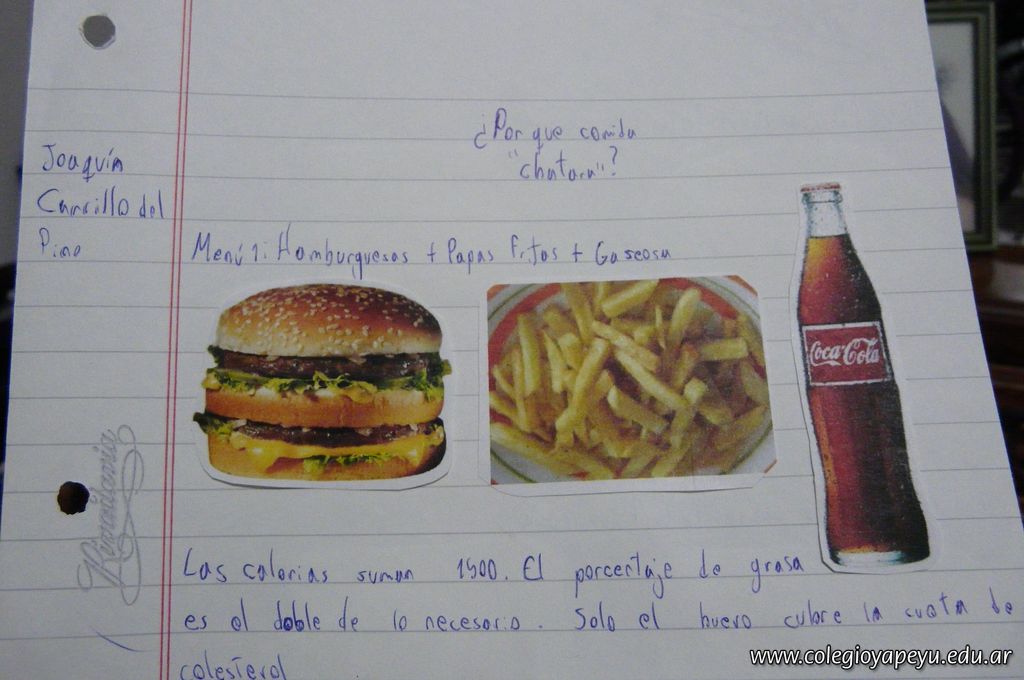 ¿Por que comida
"chatara"?
Joaquín
Carrillo del
Pino
Menú 1: Hamburguesas + Papas fritas + Gaseosa
Coca-Cola
Rivadavia
Las calorias suman 1500. El porcentaje de grasa
es el doble de lo necesario. Solo el huevo cubre la cuota de
colesterol
www.colegioyapeyu.edu.ar